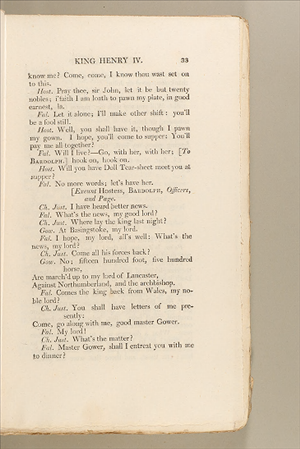 KING HENRY IV. 33
know me? Come, come, I know thou wast set on
to this.
Host. Pray thee, sir John, let it be but twenty
nobles; i'faith I am loath to pawn my plate, in good
earnest, la.
Fal. Let it alone; I'll make other shift: you'll
be a fool still.
Host. Well, you shall have it, though I pawn
my gown. I hope, you'll come to supper: You'll
pay me all together?
Fal. Will I live?—Go, with her, with her; [To
BARDOLPH.] hook on, hook on.
Host. Will you have Doll Tear-sheet meet you at
supper?
Fal. No more words; let's have her.
[Exeunt Hostess, BARDOLPH, Officers,
and Page.
Ch. Just. I have heard better news.
Fal. What's the news, my good lord?
Ch. Just. Where lay the king last night?
Gow. At Basingstoke, my lord.
Fal. I hope, my lord, all's well: What's the
news, my lord?
Ch. Just. Come all his forces back?
Gow. No; fifteen hundred foot, five hundred
horse,
Are march'd up to my lord of Lancaster,
Against Northumberland, and the archbishop.
Fal. Comes the king back from Wales, my no-
ble lord?
Ch. Just. You shall have letters of me pre-
sently:
Come, go along with me, good master Gower.
Fal. My lord!
Ch. Just. What's the matter?
Fal. Master Gower, shall I entreat you with me
to dinner?